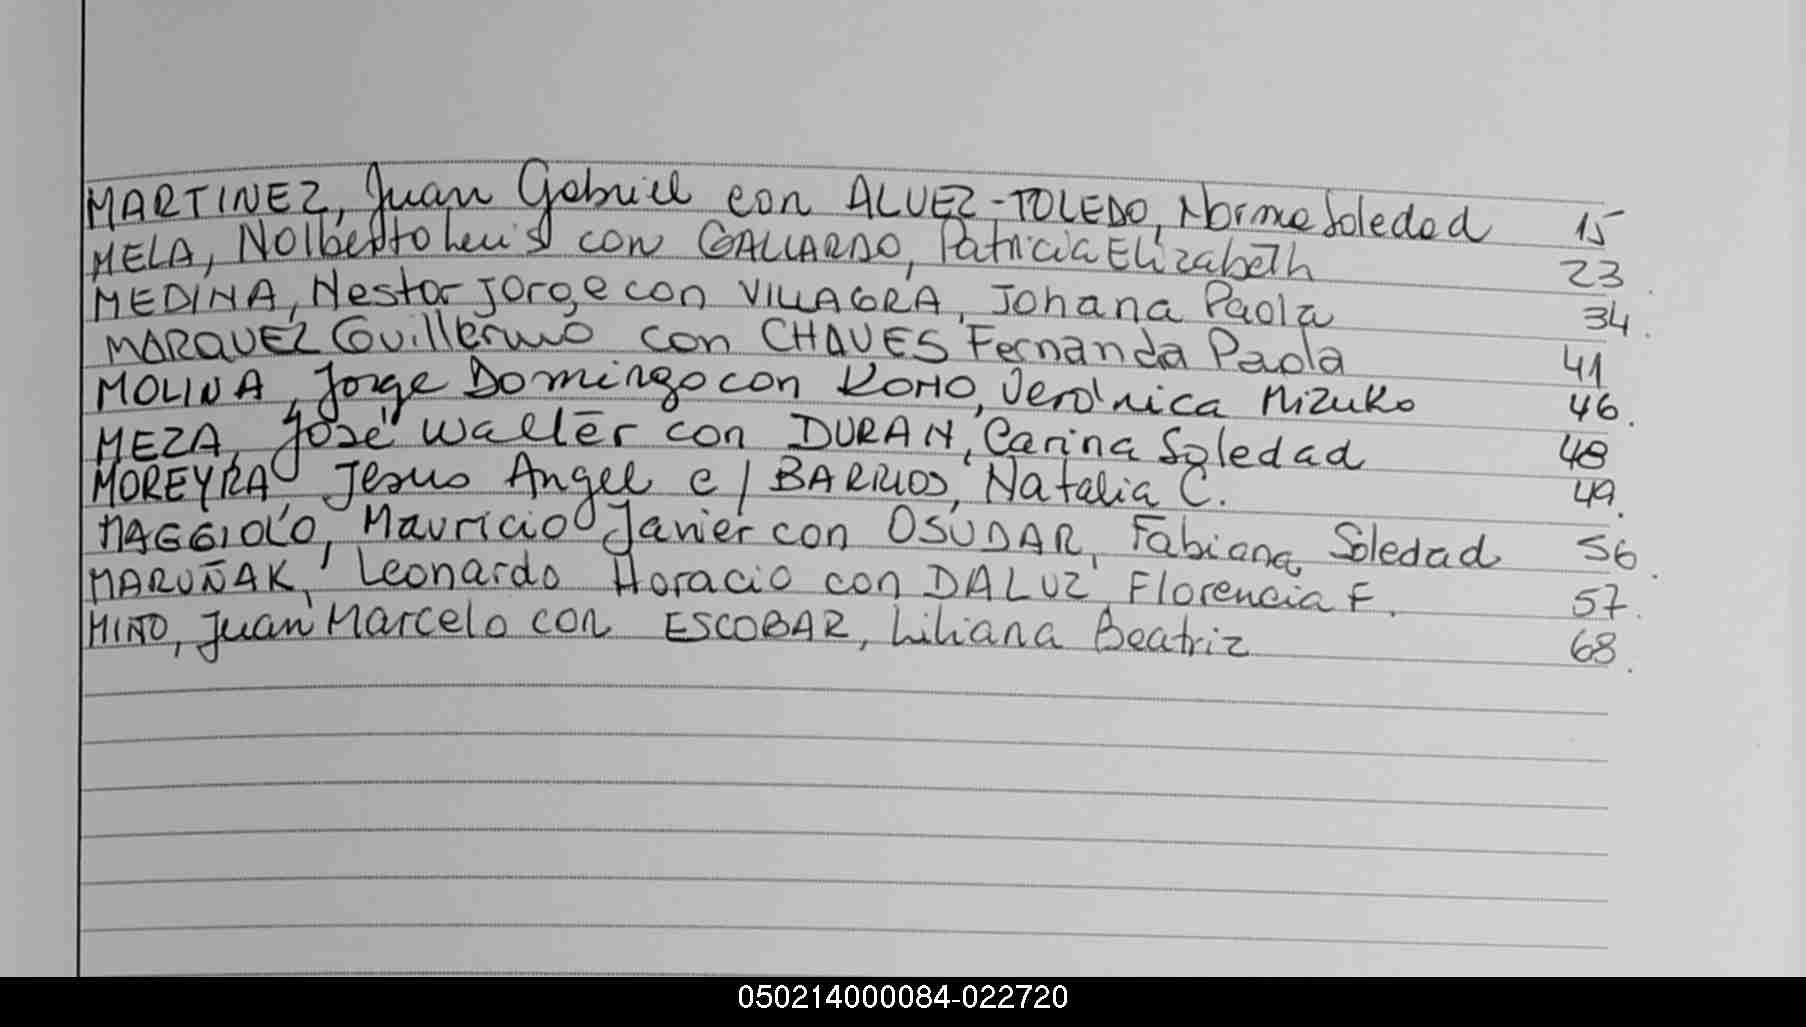 MARTINEZ, Juan Gabriel con ALVEZ-TOLEDO, Norma Soledad 15
MELA, Nolberto Luis con GALLARDO, Patricia Elizabeth 23
MEDINA, Nestor Jorge con VILLAGRA, Johana Paola 34.
MARQUEZ Guillermo con CHAVES Fernanda Paola 41
MOLINA, Jorge Domingo con KOHO, Verónica Mizuko 46.
MEZA, José Walter con DURAN, Carina Soledad 48
MOREYRA Jesus Angel c/ BARRIOS, Natalia C. 49.
MAGGIOLO, Mauricio Javier con OSUDAR, Fabiana Soledad 56.
MARUÑAK, Leonardo Horacio con DALUZ Florencia F. 57.
MIÑO, Juan Marcelo con ESCOBAR, Liliana Beatriz 68.
050214000084-022720